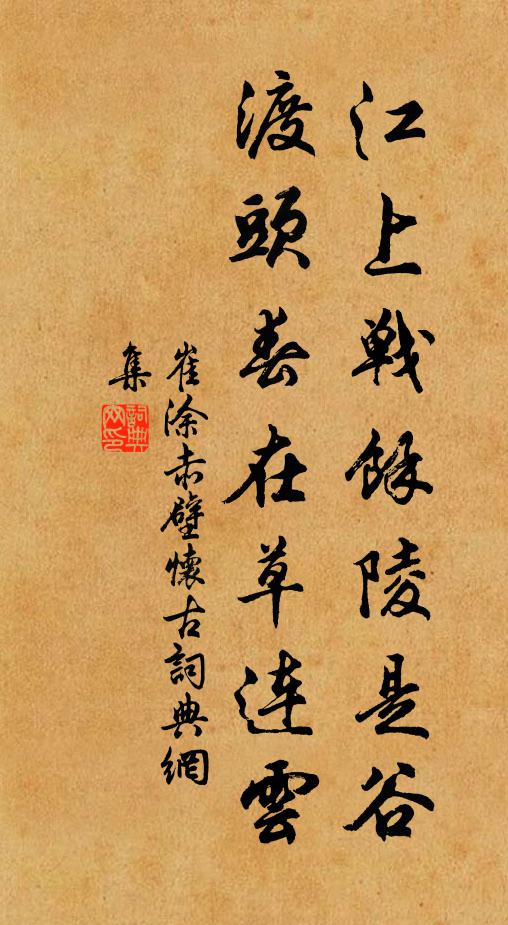 江上戰餘陵是谷
渡頭春在草連雲
崔涂赤壁懷古詞典網
集
詞典
网印